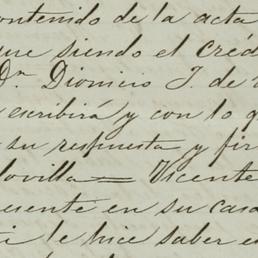 contenido de la acta
que siendo el créd
Dn Dionicio J. de
escribirá y con lo q
su respuesta y fir
ovilla = Vicente
esente en su casa
ti le hice saber e